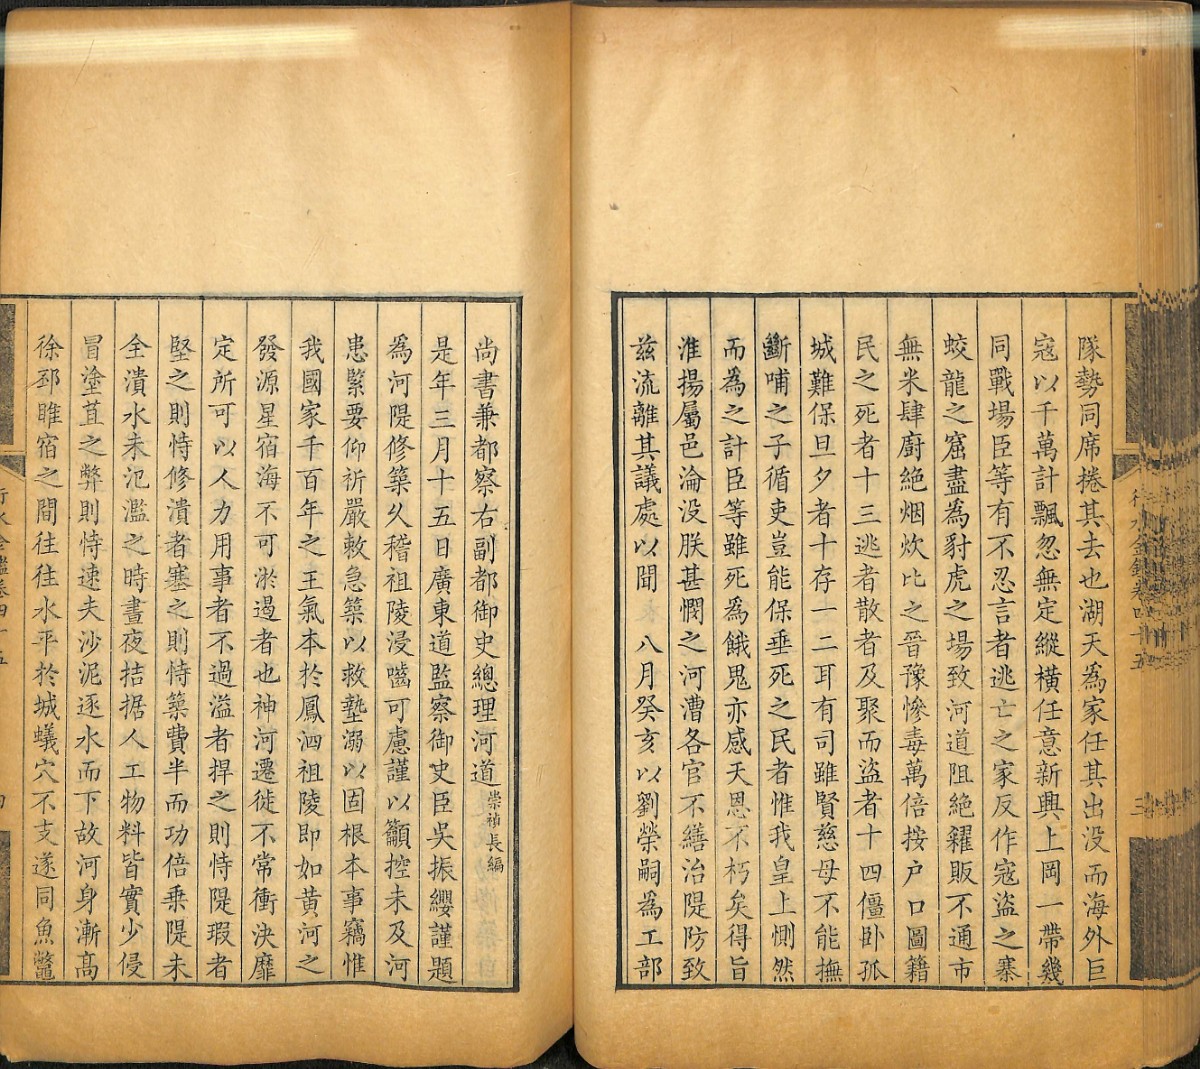 隊勢同席捲其去也湖天為家任其出没而海外巨
寇以千萬計飄忽無定縱橫任意新興上岡一帶幾
同戰場臣等有不忍言者逃亡之家反作寇盜之寨
蛟龍之窟盡為豺虎之場致河道阻絶糴販不通市
無米肆廚絶烟炊比之晉豫慘毒萬倍按户口圖籍
民之死者十三逃者散者及聚而盜者十四僵卧孤
城難保旦夕者十存一二耳有司雖賢慈母不能撫
斷哺之子循吏豈能保垂死之民者惟我皇上惻然
而為之計臣等雖死為餓鬼亦感天恩不朽矣得旨
淮揚屬邑淪没朕甚憫之河漕各官不繕治隄防致
兹流離其議處以聞 八月癸亥以劉榮嗣為工部
尚書兼都察右副都御史總理河道崇禎長編
是年三月十五日廣東道監察御史臣吳振纓謹題
為河隄修築久稽祖陵浸嚙可慮謹以籲控未及河
患緊要仰祈嚴敕急築以救墊溺以固根本事竊惟
我國家千百年之王氣本於鳳泗祖陵即如黄河之
發源星宿海不可淤遏者也神河遷徙不常衝決靡
定所可以人力用事者不過溢者捍之則恃隄瑕者
堅之則恃修潰者塞之則恃築費半而功倍乗隄未
全潰水未氾濫之時晝夜拮据人工物料皆實少侵
冒塗苴之弊則恃速夫沙泥逐水而下故河身漸高
徐邳睢宿之間往往水平於城蟻穴不支遂同魚鼈
行水金鑑卷四十五